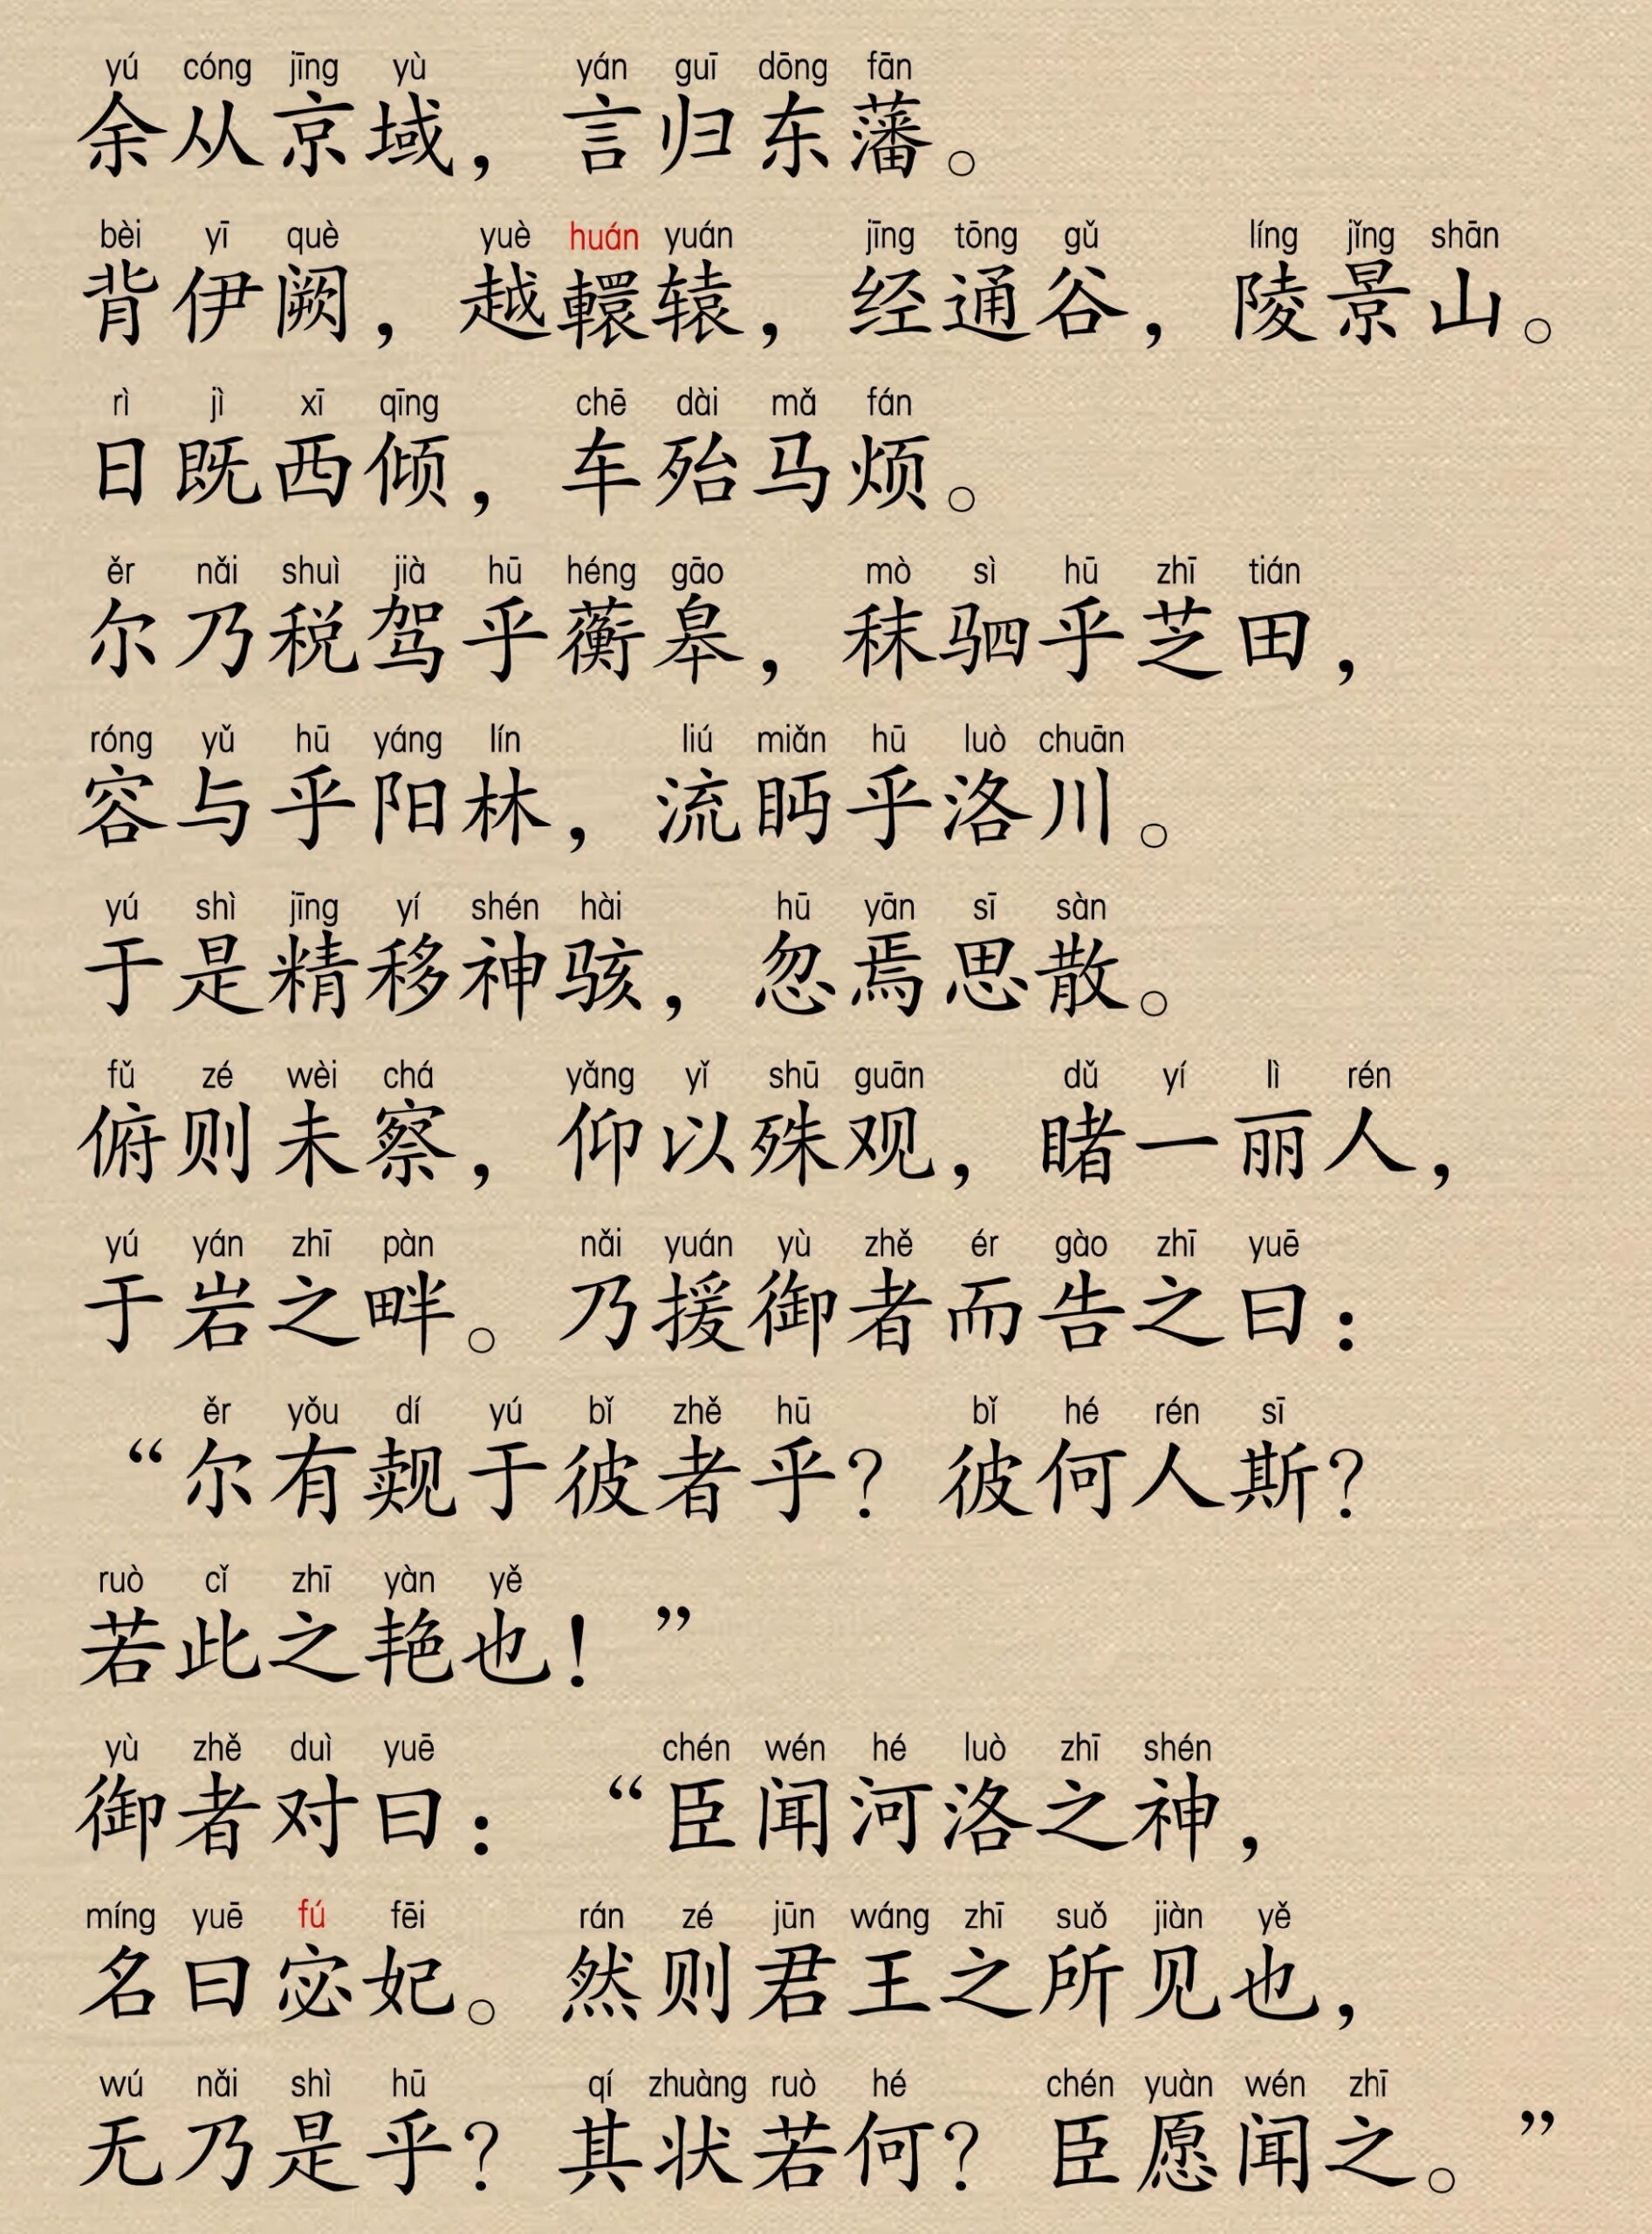 yú cóng jīng yù yán guī dōng fān
余从京域，言归东藩。
bèi yī què yuè huán yuán jīng tōng gǔ líng jǐng shān
背伊阙，越轘辕，经通谷，陵景山。
rì jì xī qīng chē dài mǎ fán
日既西倾，车殆马烦。
ěr nǎi shuì jià hū héng gāo mò sì hū zhī tián
尔乃税驾乎蘅皋，秣驷乎芝田，
róng yǔ hū yáng lín liú miǎn hū luò chuān
容与乎阳林，流眄乎洛川。
yú shì jīng yí shén hài hū yān sī sàn
于是精移神骇，忽焉思散。
fǔ zé wèi chá yǎng yǐ shū guān dǔ yí lì rén
俯则未察，仰以殊观，睹一丽人，
yú yán zhī pàn nǎi yuán yù zhě ér gào zhī yuē
于岩之畔。乃援御者而告之曰：
ěr yǒu dí yú bǐ zhě hū bǐ hé rén sī
“尔有觌于彼者乎？彼何人斯？
ruò cǐ zhī yàn yě
若此之艳也！”
yù zhě duì yuē chén wén hé luò zhī shén
御者对曰：“臣闻河洛之神，
míng yuē fú fēi rán zé jūn wáng zhī suǒ jiàn yě
名曰宓妃。然则君王之所见也，
wú nǎi shì hū qí zhuàng ruò hé chén yuàn wén zhī
无乃是乎？其状若何？臣愿闻之。”